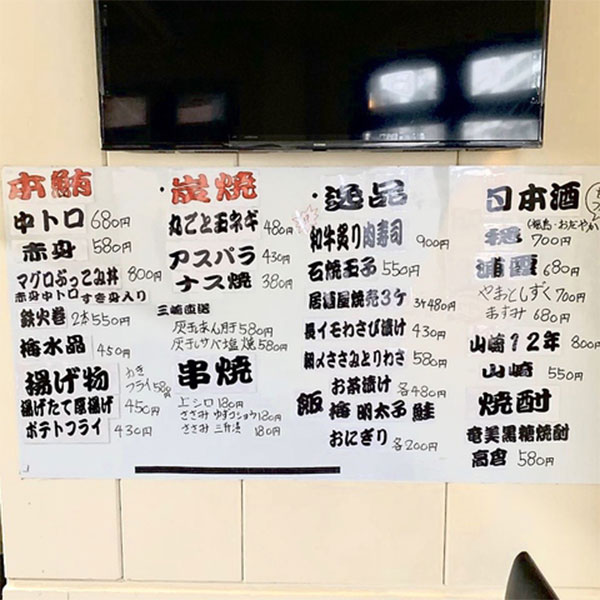 本鮪
中トロ 680円
赤身 580円
マグロぶっこみ丼 800円
赤身中トロすき身入り
鉄火巻 2本550円
梅水晶 450円
揚げ物
かき
フライ 580
揚げたて厚揚げ 450円
ポテトフライ 430円
・炭焼
丸ごと玉ネギ 480
アスパラ 430円
ナス焼 380円
三崎直送
灰干あん肝 580円
灰干しサバ塩焼 580円
串焼
上シロ 180円
ささみ ゆずコショウ 180円
ささみ 三升漬 180円
・逸品
和牛炙り肉寿司 900円
石焼玉子 550円
居酒屋焼売3ケ 3ケ480円
長イモわさび漬け 430円
ささみとりわさ 580円
飯
お茶漬け 各480円
梅 明太子 鮭
おにぎり 各200円
日本酒
(福島・おだやか
穏 700円
浦霞 680円
やまとしずく 700円
あすみ 680円
山崎12年 800円
山崎 550円
焼酎
奄美黒糖焼酎
高倉 580円